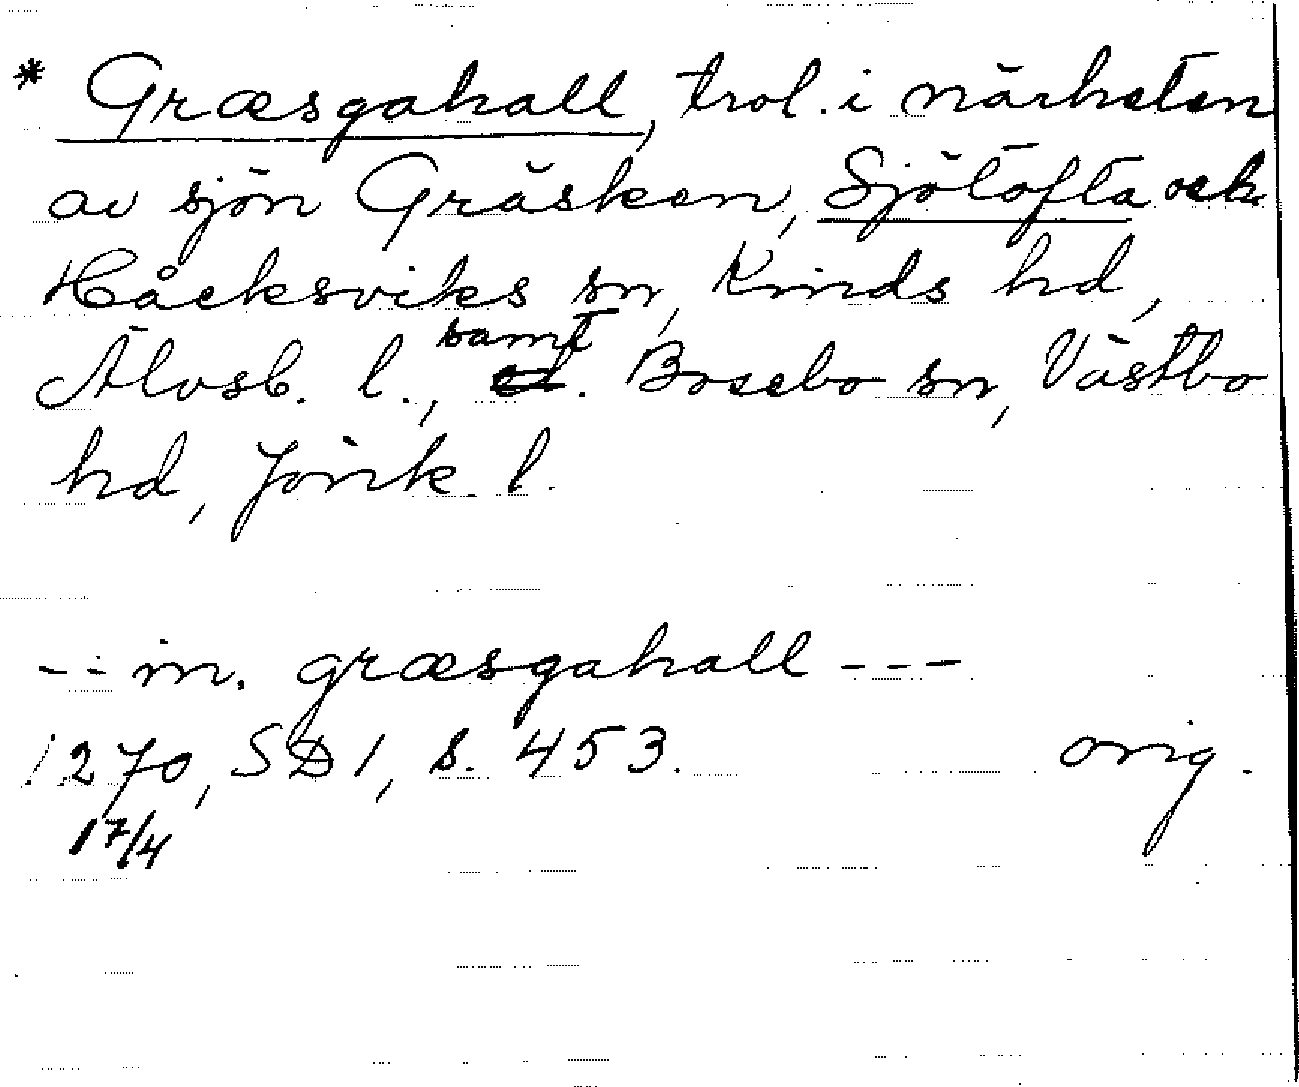 * Græsgahall, trol. i närheten
av sjön Gräsken, Sjötofta och
Håcksviks sn, Kinds hd,
Älvsb. l., samt Bosebo sn, Västbo
hd, Jönk. l.
--- in. græsgahall ---
1270, SD 1, s. 453. orig.
17/4